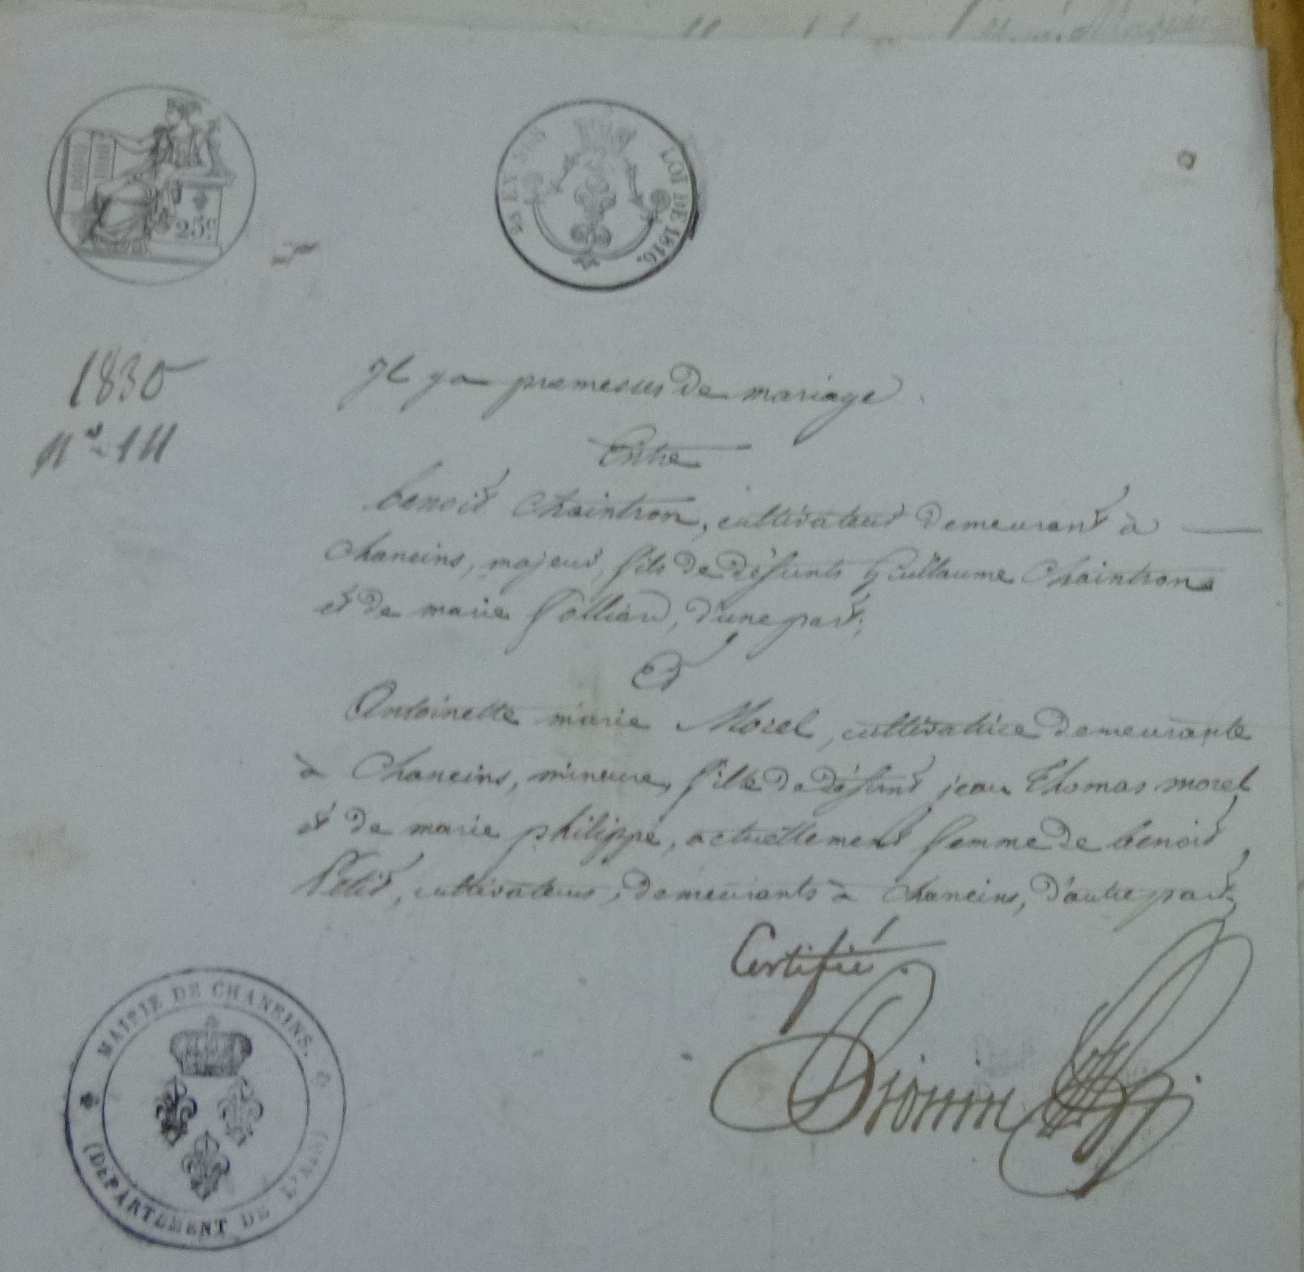 25c
LOI DE 1816.
1830
N° 111
Il y a promesses de mariage
Entre
benoit Chaintron, cultivateur demeurant à
Chaneins, majeur, fils de défunts Guillaume Chaintron
et de marie Folliard, d'une part;
Et
Antoinette marie Morel, cultivatrice demeurante
à Chaneins, mineure, fille de défunt jean Thomas morel
et de marie philippe, actuellement femme de benoit
Petit, cultivateurs, demeurants à Chaneins, d'autre part,
Certifié.
MAIRIE DE CHANEINS.
(DÉPARTEMENT DE L'AIN)